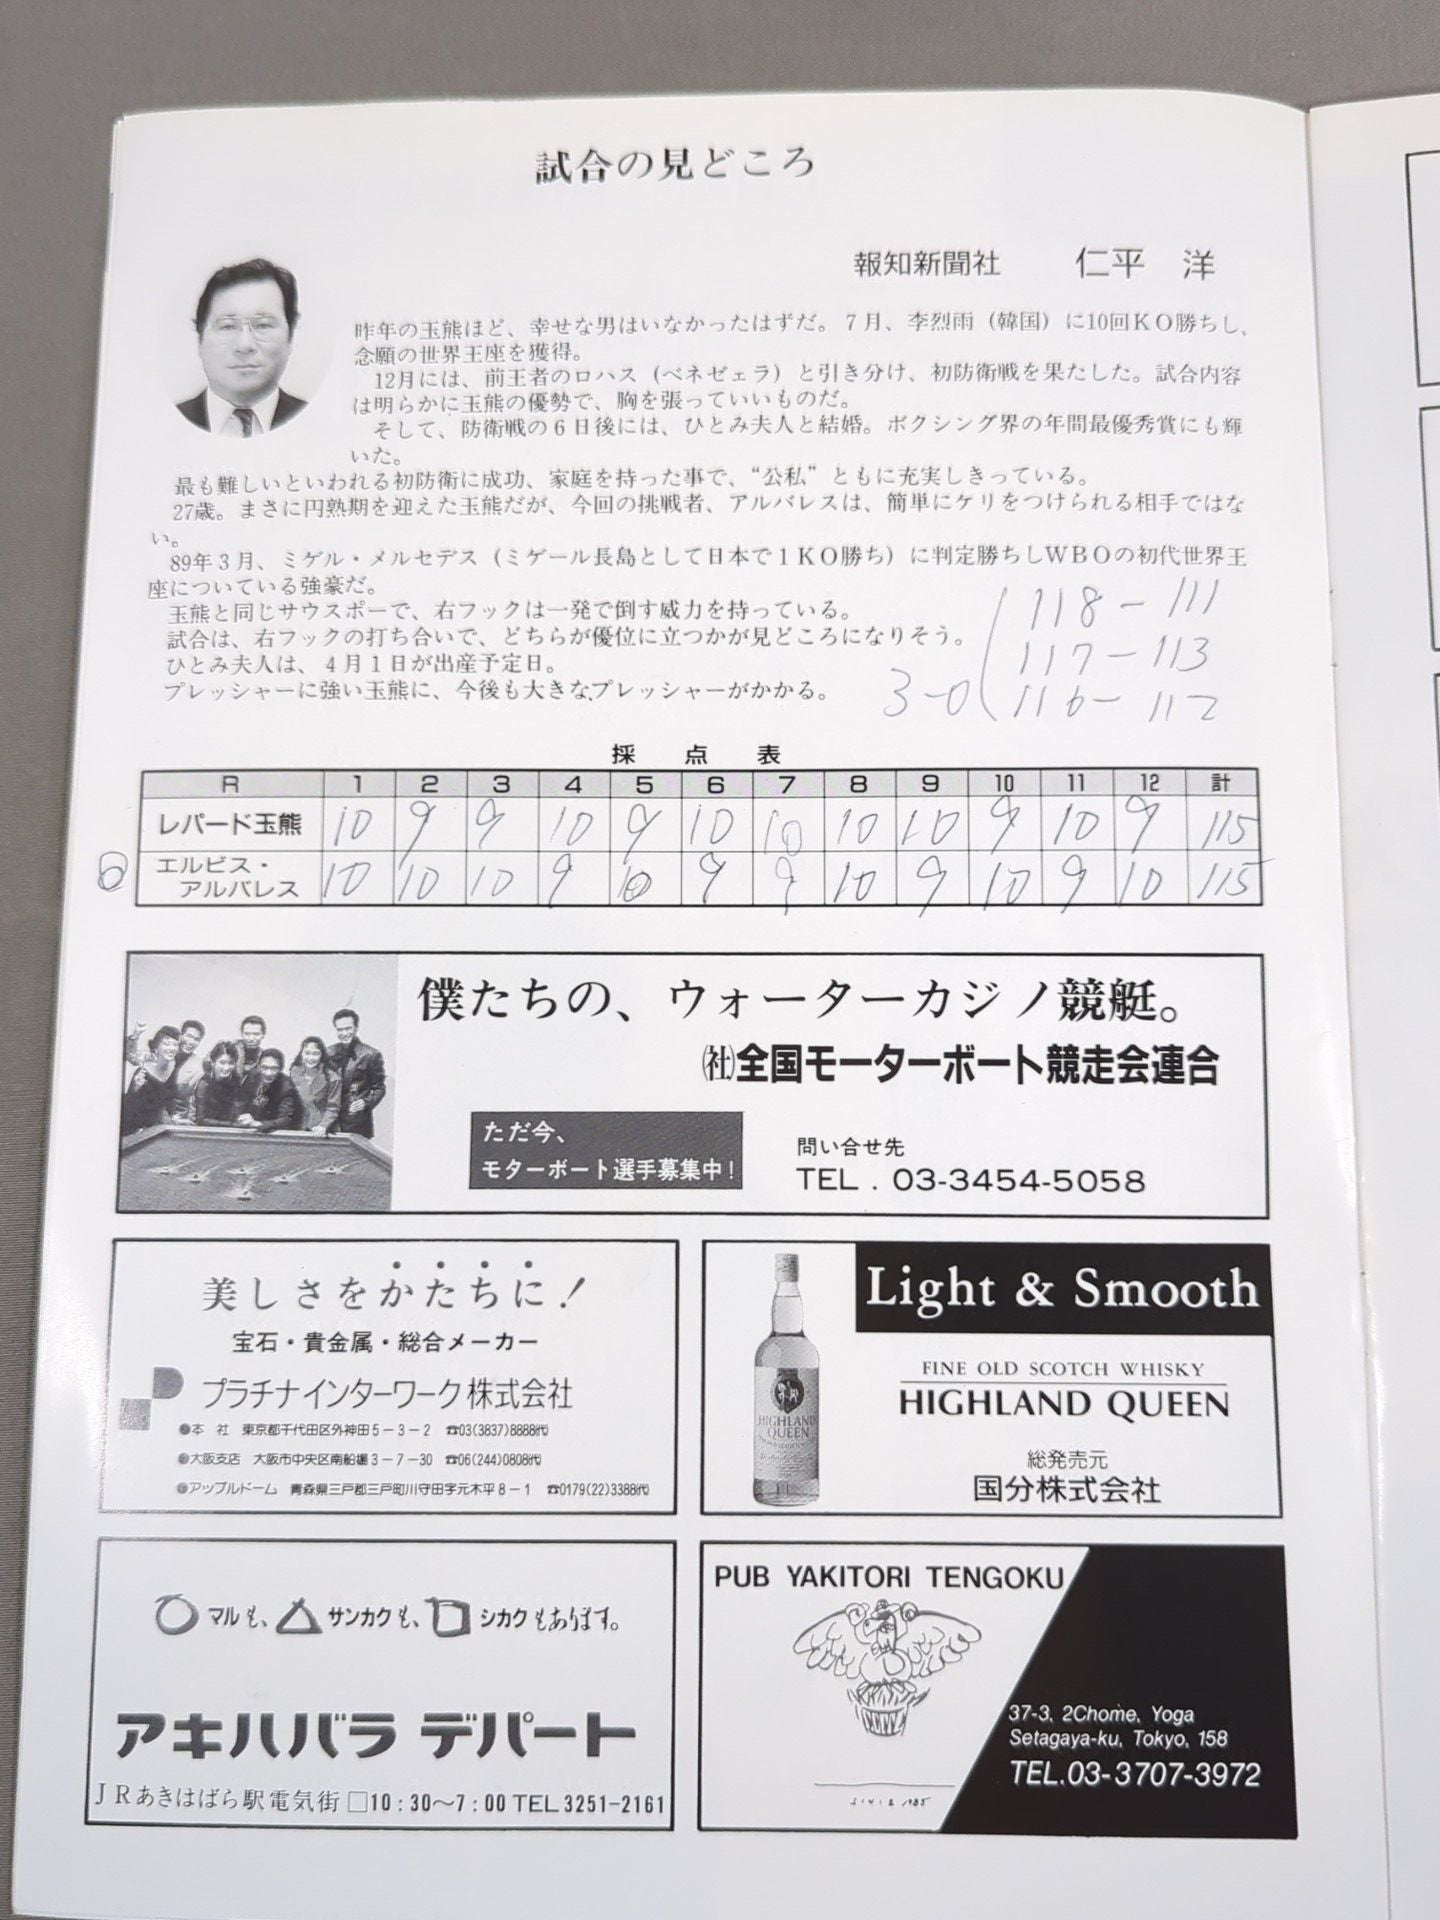 試合の見どころ
報知新聞社　仁平　洋
昨年の玉熊ほど、幸せな男はいなかったはずだ。７月、李烈雨（韓国）に10回ＫＯ勝ちし、
念願の世界王座を獲得。
12月には、前王者のロハス（ベネゼェラ）と引き分け、初防衛戦を果たした。試合内容
は明らかに玉熊の優勢で、胸を張っていいものだ。
そして、防衛戦の６日後には、ひとみ夫人と結婚。ボクシング界の年間最優秀賞にも輝
いた。
最も難しいといわれる初防衛に成功、家庭を持った事で、“公私”ともに充実しきっている。
27歳。まさに円熟期を迎えた玉熊だが、今回の挑戦者、アルバレスは、簡単にケリをつけられる相手ではな
い。
89年３月、ミゲル・メルセデス（ミゲール長島として日本で１ＫＯ勝ち）に判定勝ちしＷＢＯの初代世界王
座についている強豪だ。
玉熊と同じサウスポーで、右フックは一発で倒す威力を持っている。
試合は、右フックの打ち合いで、どちらが優位に立つかが見どころになりそう。
ひとみ夫人は、４月１日が出産予定日。
プレッシャーに強い玉熊に、今後も大きなプレッシャーがかかる。
118-111
117-113
3-0 ( 116-112
採　点　表
R 1 2 3 4 5 6 7 8 9 10 11 12 計
レパード玉熊 10 9 9 10 9 10 10 10 10 9 10 9 115
エルビス・
アルバレス 10 10 10 9 10 9 9 10 9 10 9 10 115
僕たちの、ウォーターカジノ競艇。
㈳全国モーターボート競走会連合
ただ今、
モターボート選手募集中！
問い合せ先
TEL．03-3454-5058
美しさをかたちに！
宝石・貴金属・総合メーカー
プラチナインターワーク株式会社
●本　社　東京都千代田区外神田５－３－２　☎03(3837)8888㈹
●大阪支店　大阪市中央区南船場３－７－30　☎06(244)0808㈹
●アップルドーム　青森県三戸郡三戸町川守田字元木平８－１　☎0179(22)3388㈹
Light & Smooth
FINE OLD SCOTCH WHISKY
HIGHLAND QUEEN
総発売元
国分株式会社
HIGHLAND
QUEEN
○マルも、△サンカクも、□シカクもあります。
アキハバラ デパート
ＪＲあきはばら駅電気街口10：30〜7：00 TEL3251-2161
PUB YAKITORI TENGOKU
37-3, 2Chome, Yoga
Setagaya-ku, Tokyo, 158
TEL.03-3707-3972